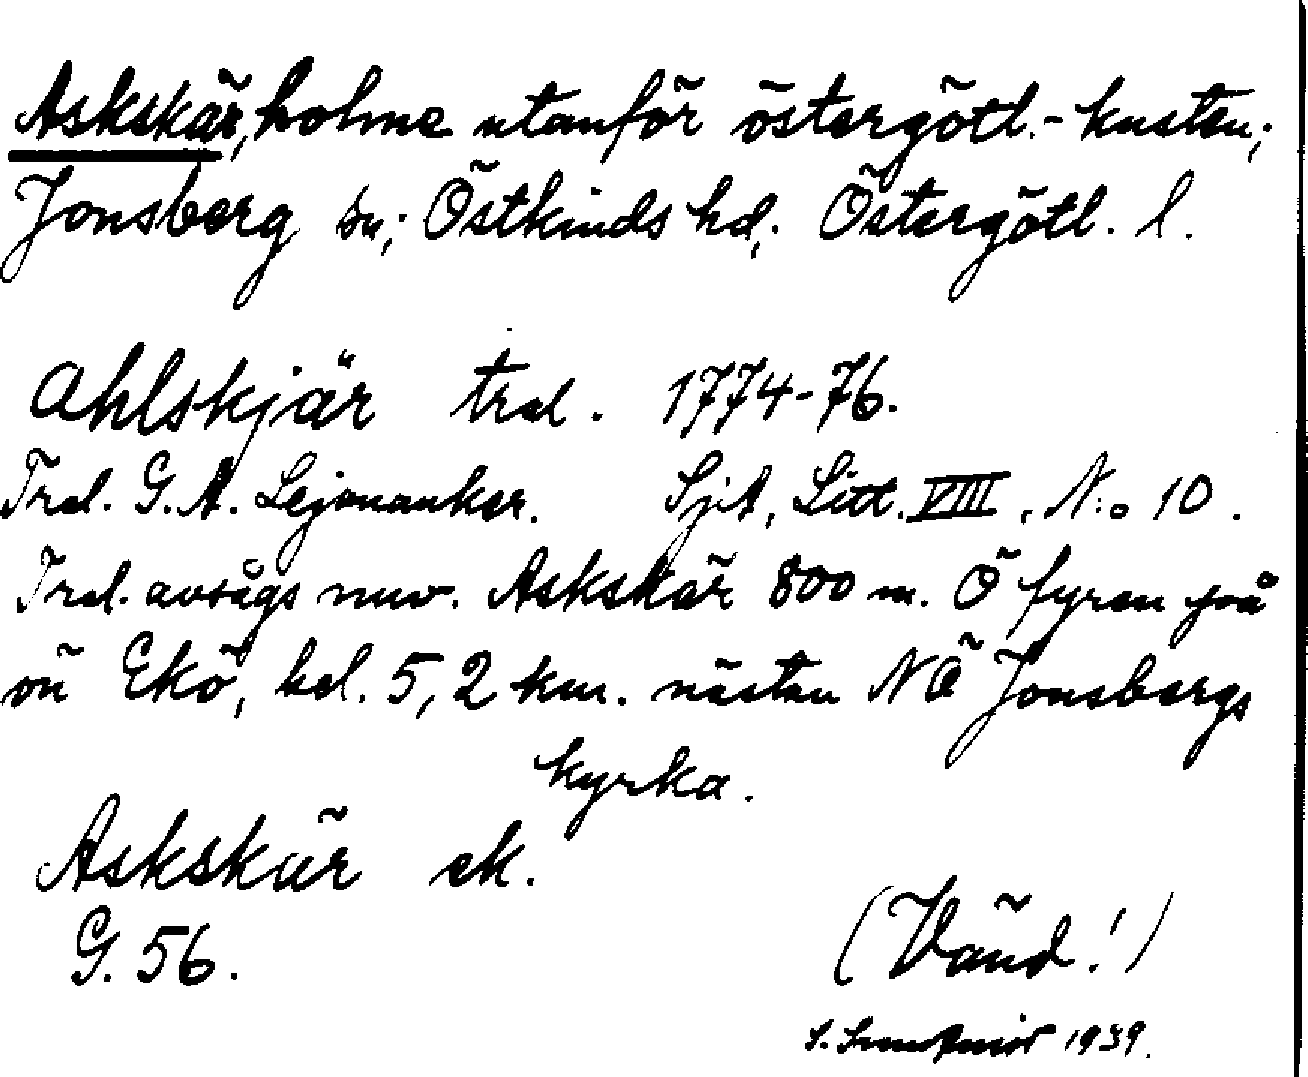 Askskär, holme utanför östergötl.-kusten;
Jonsberg sn; Östkinds hd; Östergötl. l.
Ahlskjär trol. 1774-76.
Trol. G. A. Lejonanker. SjA, Litt. VIII, N:o 10.
Trol. avsågs nuv. Askskär 800 m. Ö fyren på
ön Ekö, bel. 5,2 km. nästan NÖ Jonsbergs
kyrka.
Askskär ek.
G. 56.
(Vänd!)
S. 1939.